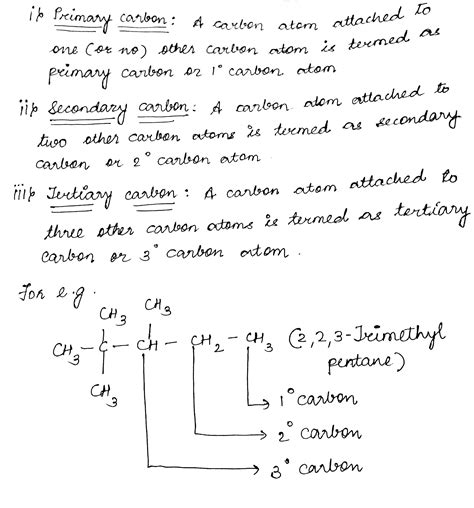 i) Primary carbon: A carbon atom attached to
one (or no) other carbon atom is termed as
primary carbon or 1° carbon atom
ii) Secondary carbon: A carbon atom attached to
two other carbon atoms is termed as secondary
carbon or 2° carbon atom.
iii) Tertiary carbon: A carbon atom attached to
three other carbon atoms is termed as tertiary
carbon or 3° carbon atom.
For e.g.
CH3 CH3
CH3 - C - CH - CH2 - CH3 (2,2,3-Trimethyl
pentane)
CH3
1° carbon
2° carbon
3° carbon